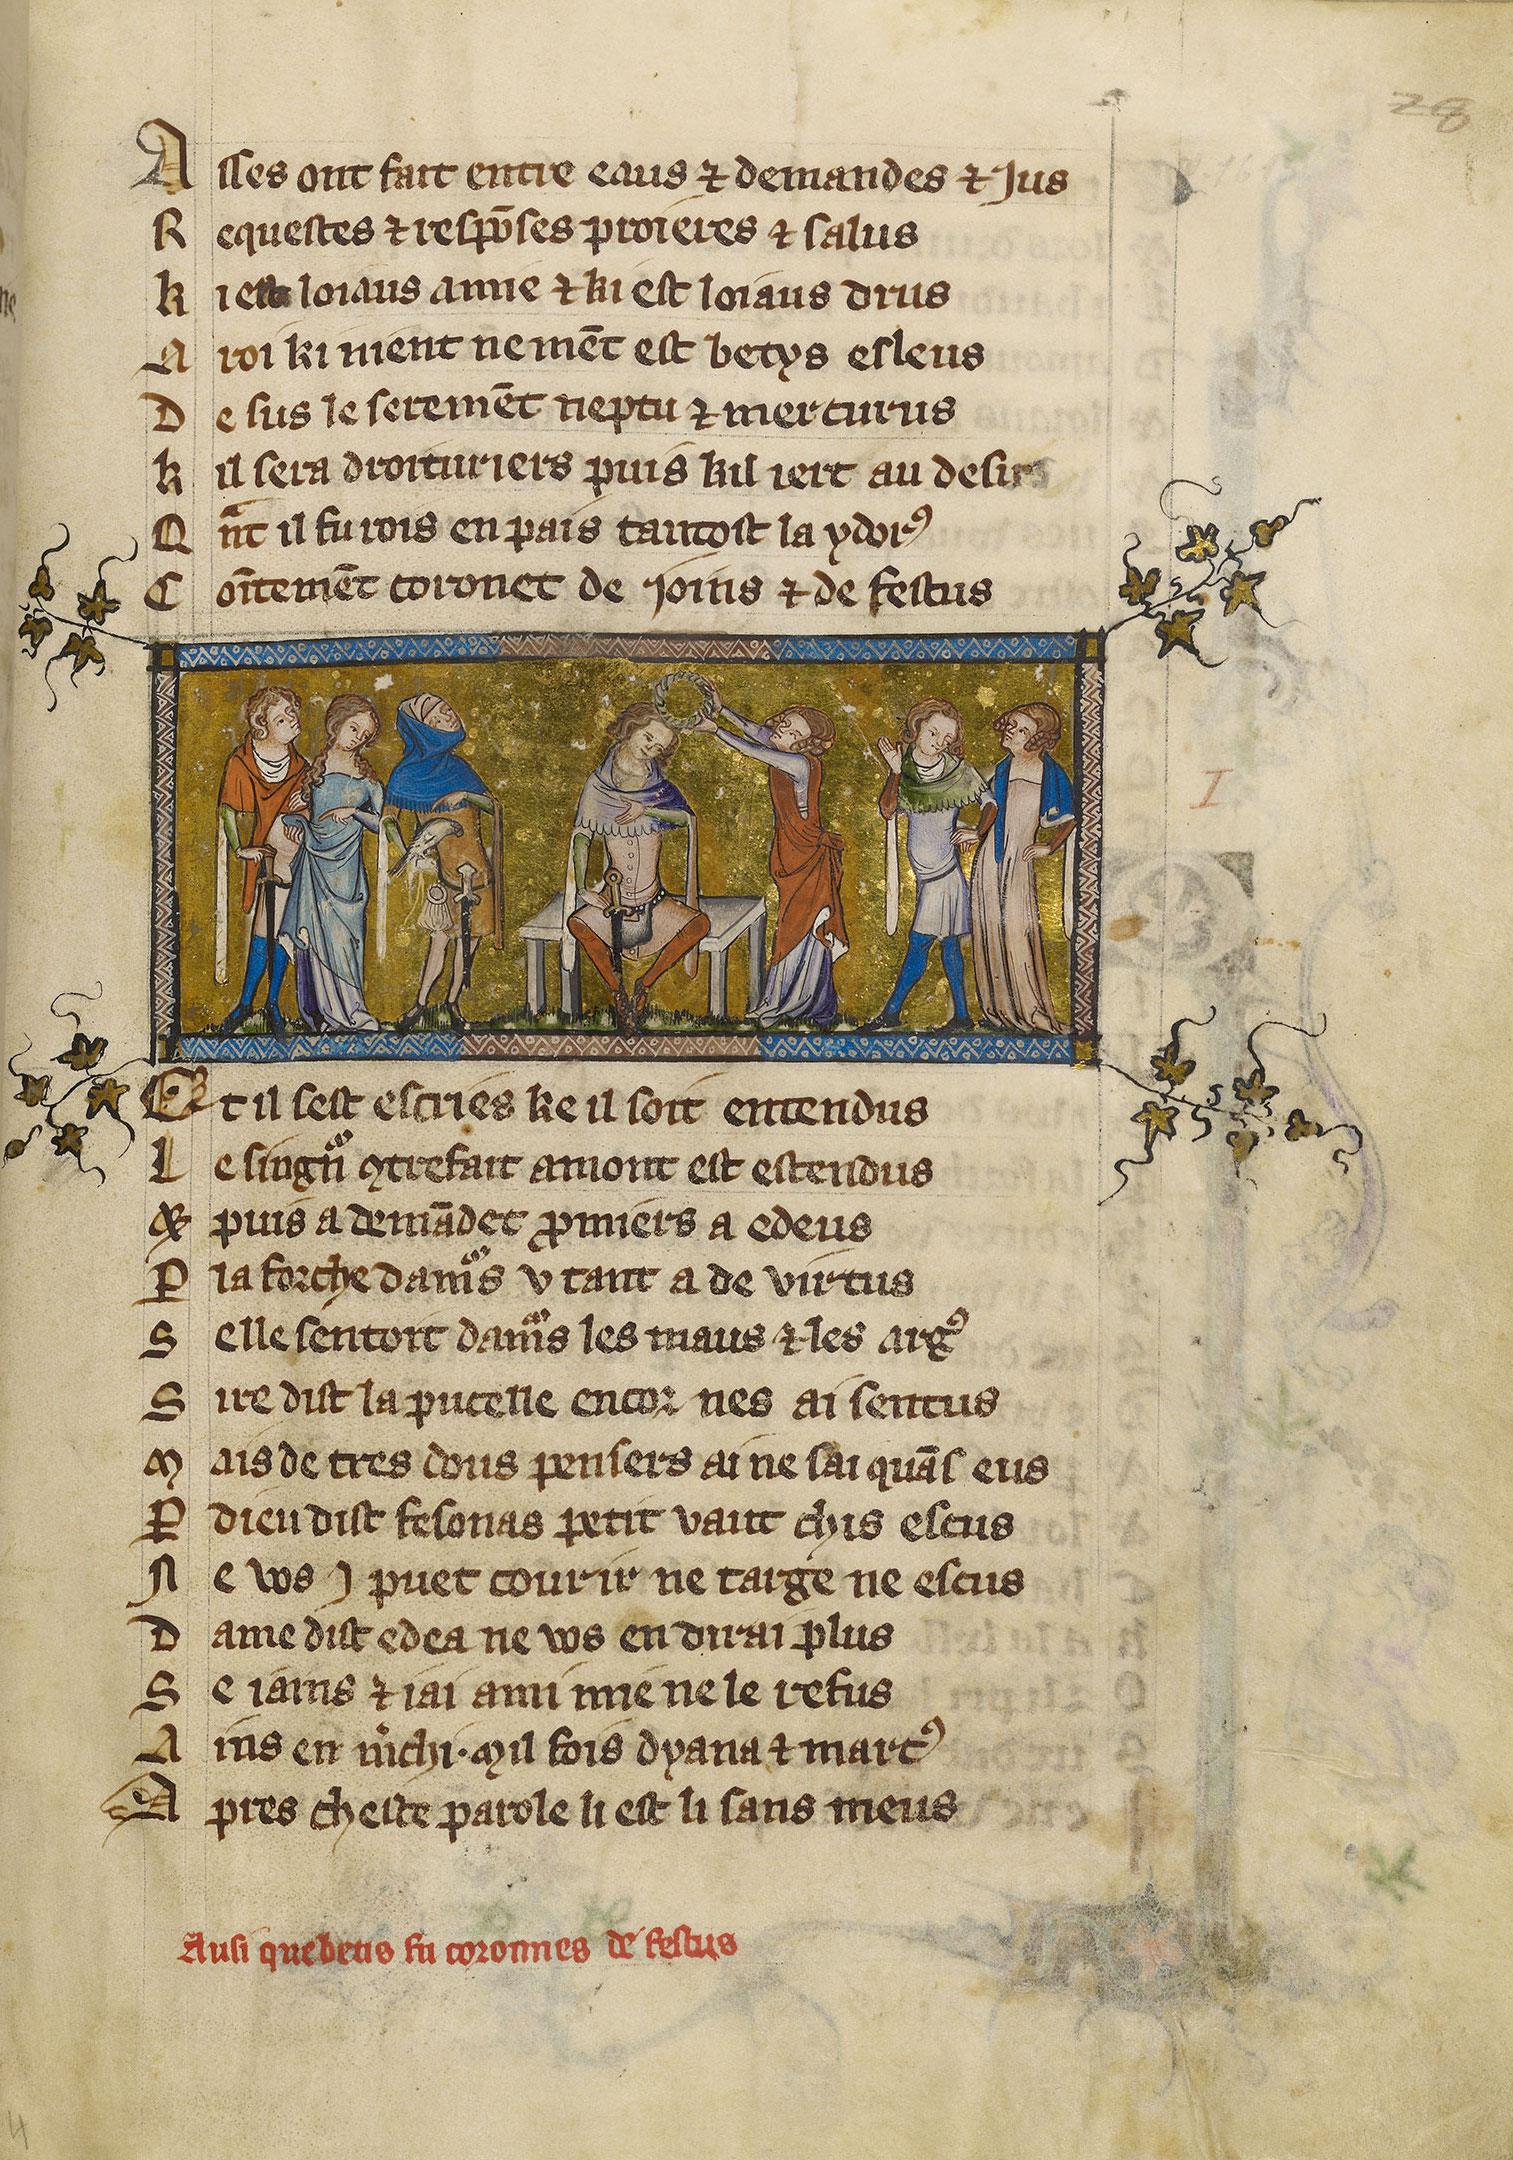 28
Asses ont fait entre eaus ⁊ demandes ⁊ Jus
Requestes ⁊ respõses proieres ⁊ salus
Ki est loiaus amie ⁊ ki est loiaus drus
A roi ki nient ne mẽt est betys esleus
De sus le seremẽt neptu ⁊ mercurus
kil sera droituriers puis kil iert au desus
Qᵃnt il fu rois en pais tantost la ydorꝰ
Cointemẽt coronet de Joins ⁊ de festus
I
Et il sest escries ke il soit entendus
Le singñ ꝯtrefait amont est estendus
⁊ puis a demãdet ꝓmiers a edeus
P la forche damᵒs v tant a de virtus
Selle sentoit damᵒs les maus ⁊ les argꝰ
Sire dist la pucelle encor nes ai sentus
Mais de tres dous pensers ai ne sai quãs eus
P dieu dist fesonas petit vaut chis escus
Ne vos J puet courir ne targe ne escus
Dame dist edea ne vos en dirai plus
Se iains ⁊ iai ami mie ne le refus
Ains en m̃chi · mil fois dyana ⁊ martꝰ
Apres cheste parole li est li sans meus
Ausi que betis fu coronnes de festus